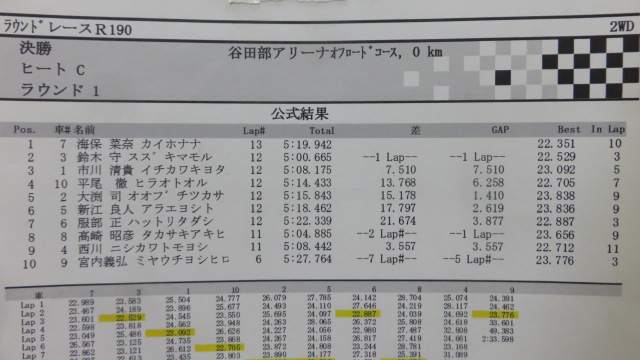 ﾗｳﾝﾄﾞ レース R190 2WD
決勝 谷田部アリーナｵﾌﾛｰﾄﾞｺｰｽ, 0 km
ヒート C
ラウンド 1
公式結果
Pos. 車# 名前 Lap# Total 差 GAP Best In Lap
1 7 海保 菜奈 カイホナナ 13 5:19.942 22.351 10
2 3 鈴木 守 スズキマモル 12 5:00.665 --1 Lap-- --1 Lap-- 22.529 3
3 1 市川 清貴 イチカワキヨタ 12 5:08.175 7.510 7.510 23.092 5
4 10 平尾 徹 ヒラオトオル 12 5:14.433 13.768 6.258 22.705 7
5 2 大渕 司 オオブチツカサ 12 5:15.843 15.178 1.410 23.838 9
6 5 新江 良人 アラエヨシト 12 5:18.462 17.797 2.619 23.836 9
7 6 服部 正 ハットリタダシ 12 5:22.339 21.674 3.877 22.887 3
8 8 高崎 昭彦 タカサキアキヒ 11 5:04.885 --2 Lap-- --1 Lap-- 23.656 9
9 4 西川 ニシカワトモヨシ 11 5:08.442 3.557 3.557 22.712 11
10 9 宮内義弘 ミヤウチヨシヒロ 6 5:27.764 --7 Lap-- --5 Lap-- 23.776 3
車 7 3 1 10 2 5 6 8 4 9
Lap 1 22.989 23.583 25.504 24.777 26.079 27.785 24.142 28.704 25.074 24.391
Lap 2 23.467 24.189 23.896 25.677 24.493 24.110 27.646 24.219 28.117 24.462
Lap 3 23.601 22.529 24.545 23.550 25.695 24.097 22.887 24.039 24.692 23.776
Lap 4 22.598 23.818 24.562 23.948 24.263 28.065 26.372 23.808 24.618 33.601
Lap 5 23.049 25.486 23.092 26.626 24.227 24.056 27.980 27.487 32.808 49.383
Lap 6 26.567 23.125 24.735 23.868 24.267 24.158 26.817 27.219 24.764 2:33.598
Lap 7 22.862 23.612 22.705 23.872 24.808 23.244 28.781 23.168